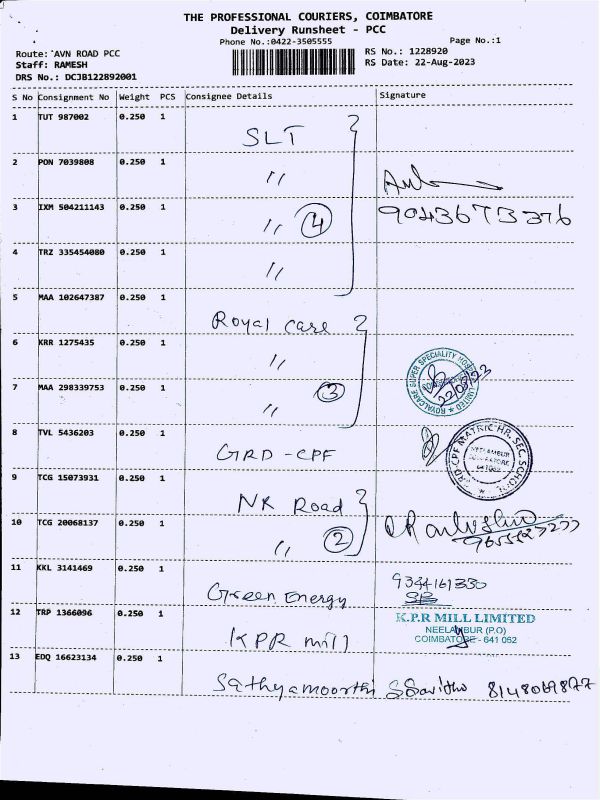 THE PROFESSIONAL COURIERS, COIMBATORE
Delivery Runsheet - PCC
Phone No.:0422-3505555
Page No.:1
Route: AVN ROAD PCC
Staff: RAMESH
DRS No.: DCJB122892001
RS No.: 1228920
RS Date: 22-Aug-2023
S No Consignment No Weight PCS Consignee Details Signature
1 TUT 987002 0.250 1 SLT
2 PON 7039808 0.250 1 "
3 IXM 504211143 0.250 1 " 4 9043673376
4 TRZ 335454080 0.250 1 "
5 MAA 102647387 0.250 1 Royal care
6 KRR 1275435 0.250 1 "
7 MAA 298339753 0.250 1 " 3 ROYALCARE SUPER SPECIALITY HOSPITAL LIMITED 22/08/23
8 TVL 5436203 0.250 1 GRD-CPF GRD-CPF MATRIC HR. SEC. SCHOOL NEELAMBUR COIMBATORE 641062
9 TCG 15073931 0.250 1 NR Road
10 TCG 20068137 0.250 1 " 2
11 KKL 3141469 0.250 1 Green Energy 9344161330
12 TRP 1366096 0.250 1 KPR mill K.P.R MILL LIMITED
NEELAMBUR (P.O)
COIMBATORE - 641 062
13 EDQ 16623134 0.250 1 Sathyamoorthi 8148069877